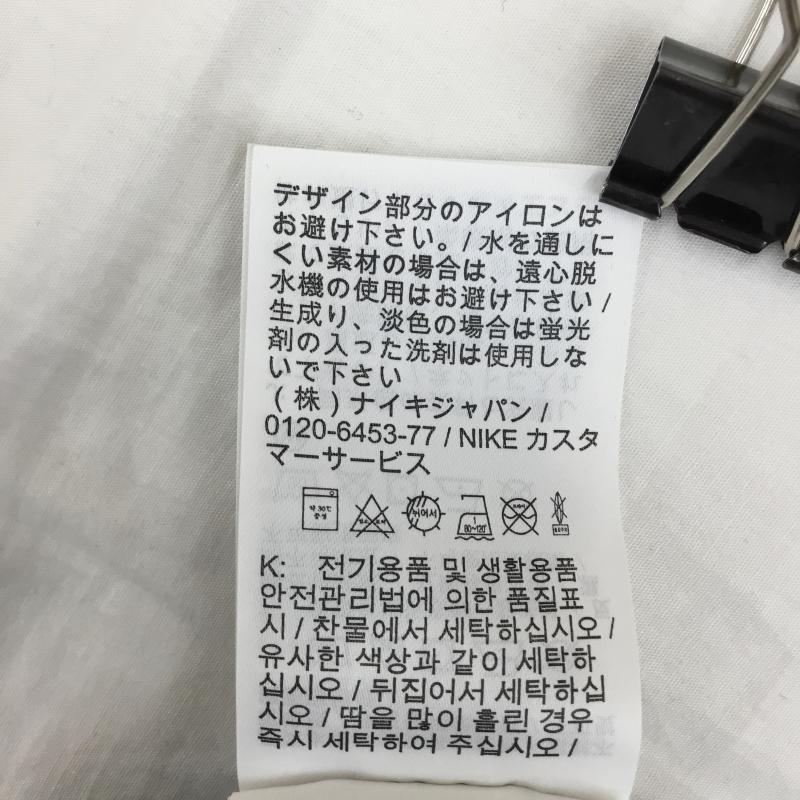 デザイン部分のアイロンは
お避け下さい。/ 水を通しに
くい素材の場合は、遠心脱
水機の使用はお避け下さい /
生成り、淡色の場合は蛍光
剤の入った洗剤は使用しな
いで下さい
(株)ナイキジャパン /
0120-6453-77 / NIKE カスタ
マーサービス
약 30℃
중성
뉘어서
80~120℃
K: 전기용품 및 생활용품
안전관리법에 의한 품질표
시 / 찬물에서 세탁하십시오 /
유사한 색상과 같이 세탁하
십시오 / 뒤집어서 세탁하십
시오 / 땀을 많이 흘린 경우
즉시 세탁하여 주십시오 /